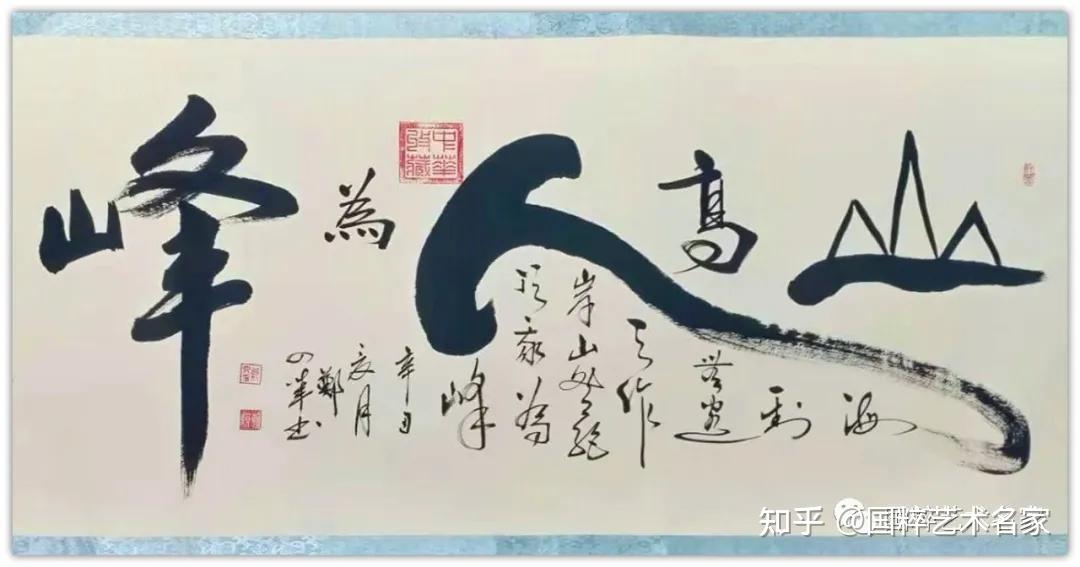 山高人為峰
海
到
無邊
天作
岸山登絕
頂我為
峰
辛丑
亥月
鄭
書
中華
收藏
知乎 @国粹艺术名家